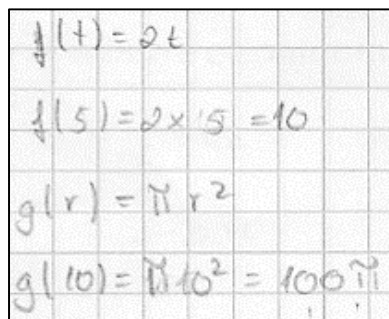 f(t) = 2t
f(5) = 2 × 5 = 10
g(r) = π r²
g(10) = π 10² = 100 π